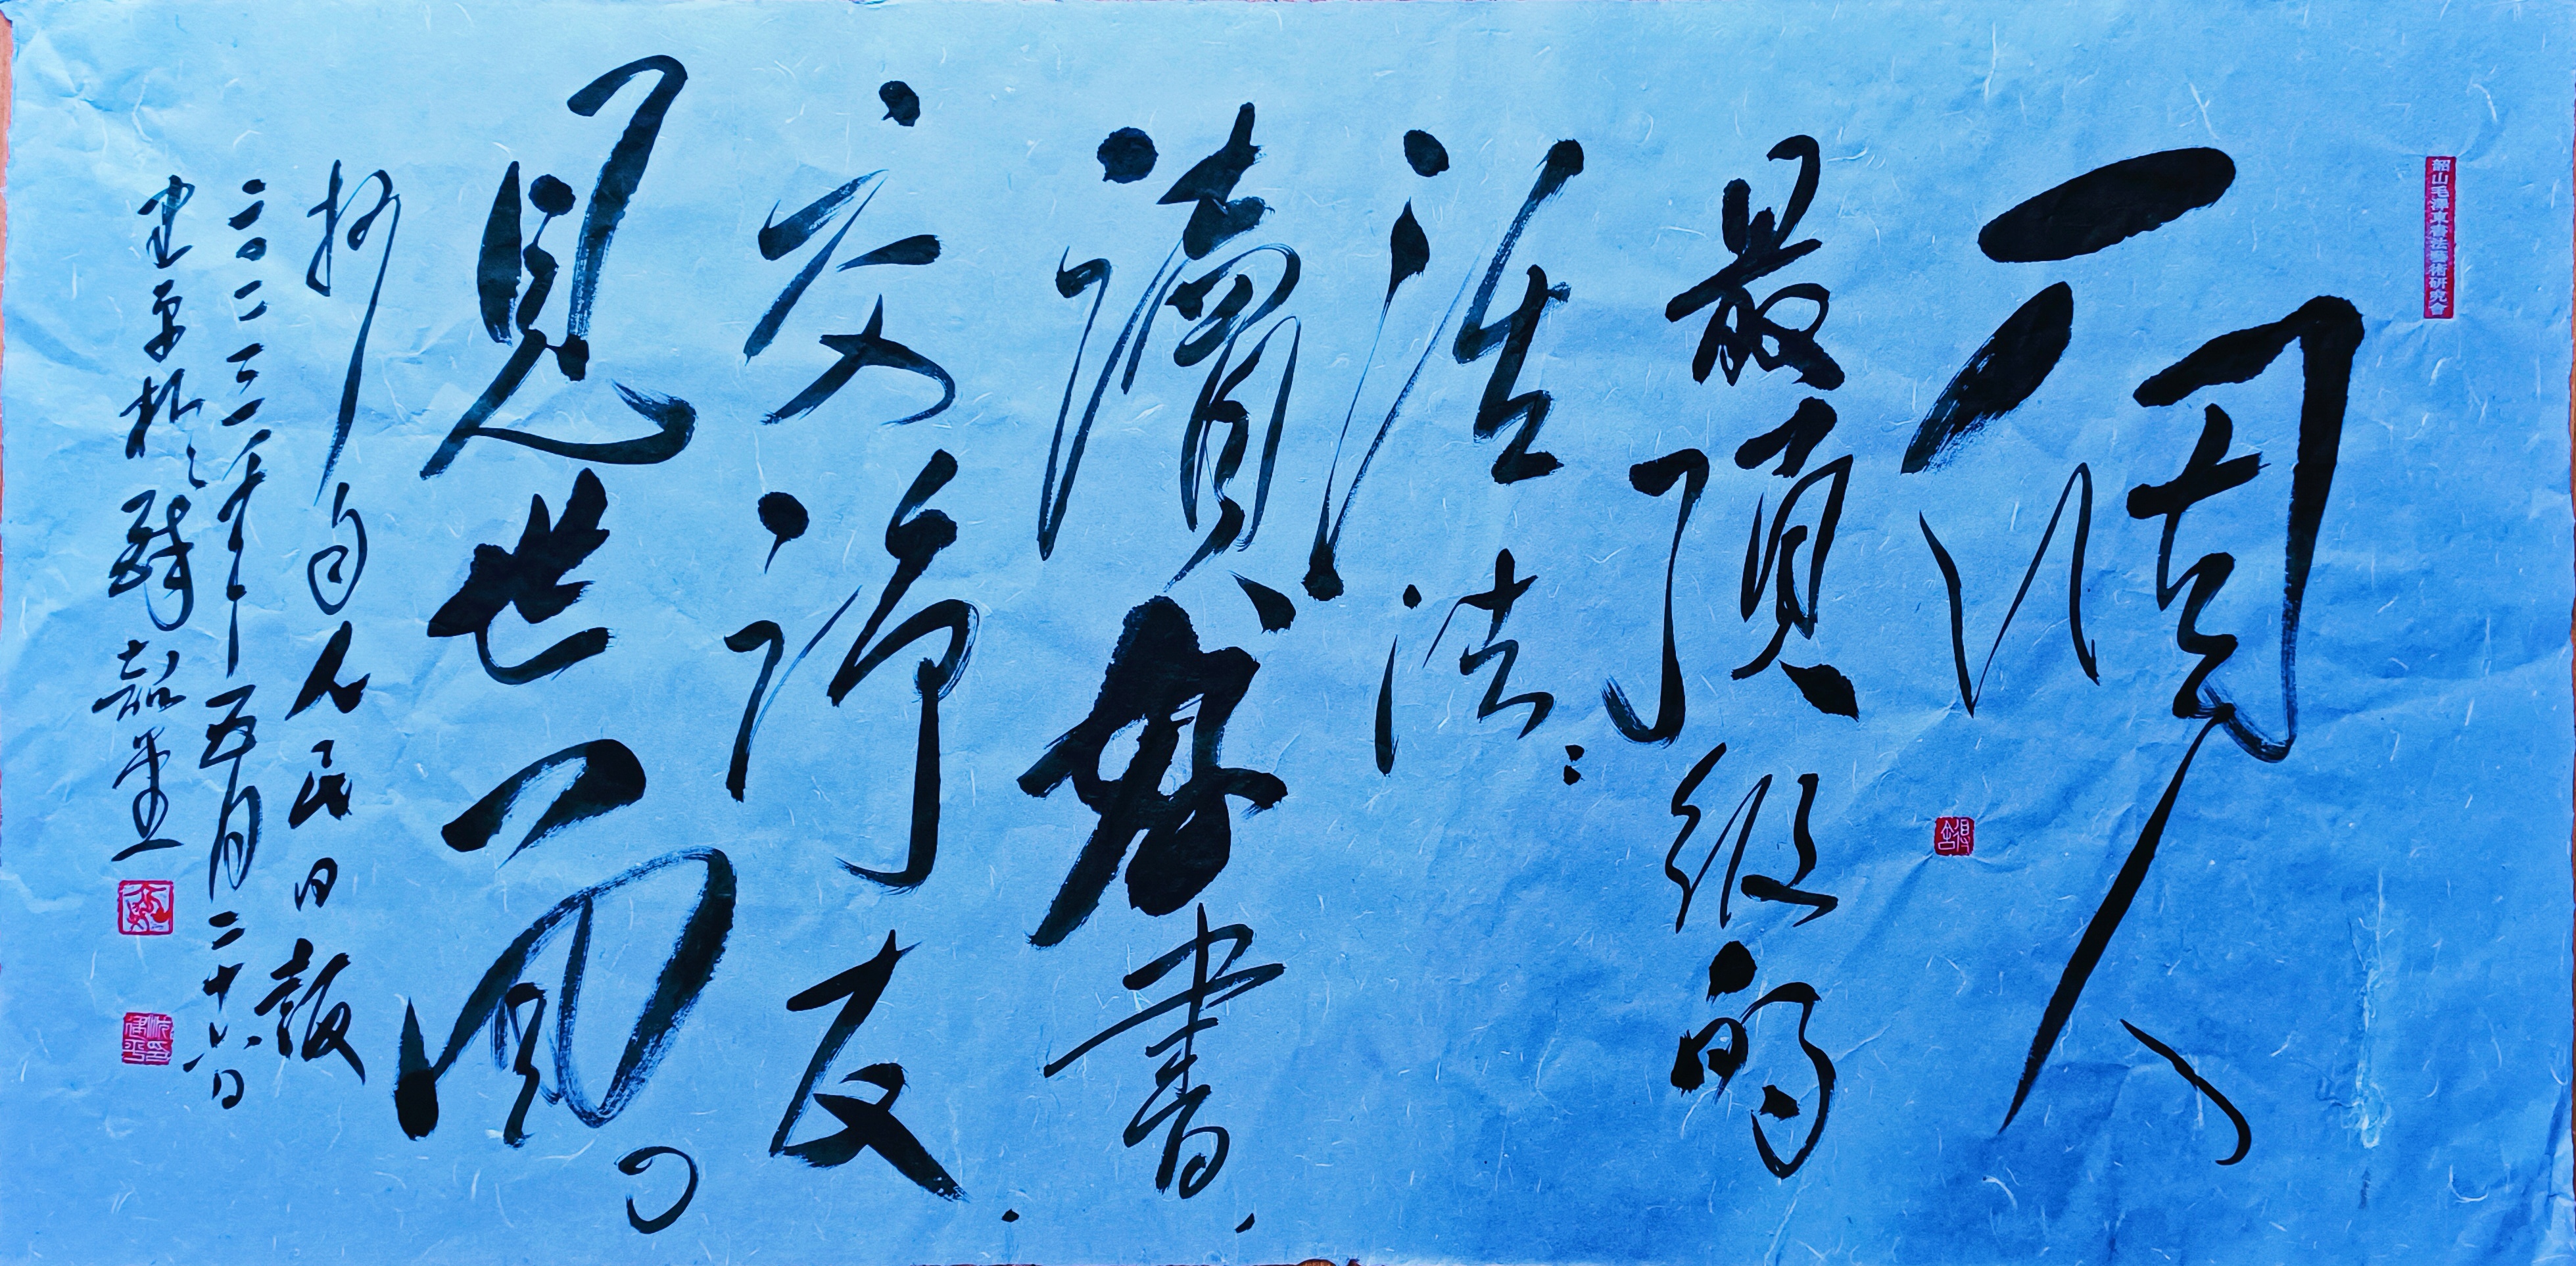 韶山毛澤東書法藝術研究會
一個人
最頂級的
活法：
讀好書，
交諍友，
見世面。
抄自人民日報
二〇二三年五月二十六日
建平於醉韶堂